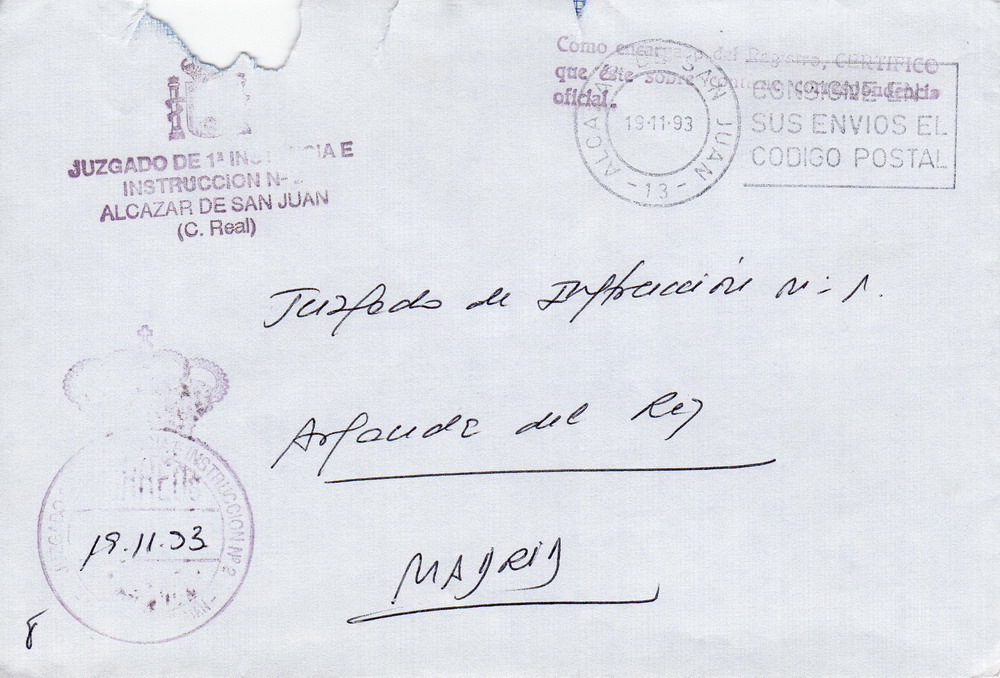 Como del Registro, CERTIFICO
que éste sobre correspondencia
oficial.
ALCAZAR DE SAN JUAN
19·11·93
- 13 -
CONSIGNE EN
SUS ENVIOS EL
CODIGO POSTAL
JUZGADO DE 1ª E
INSTRUCCION Nº
ALCAZAR DE SAN JUAN
(C. Real)
Juzgado de Instrucción nº 1.
Arganda del Rey
MADRID
JUZGADO INSTRUCCION Nº 2
19.11.93
8